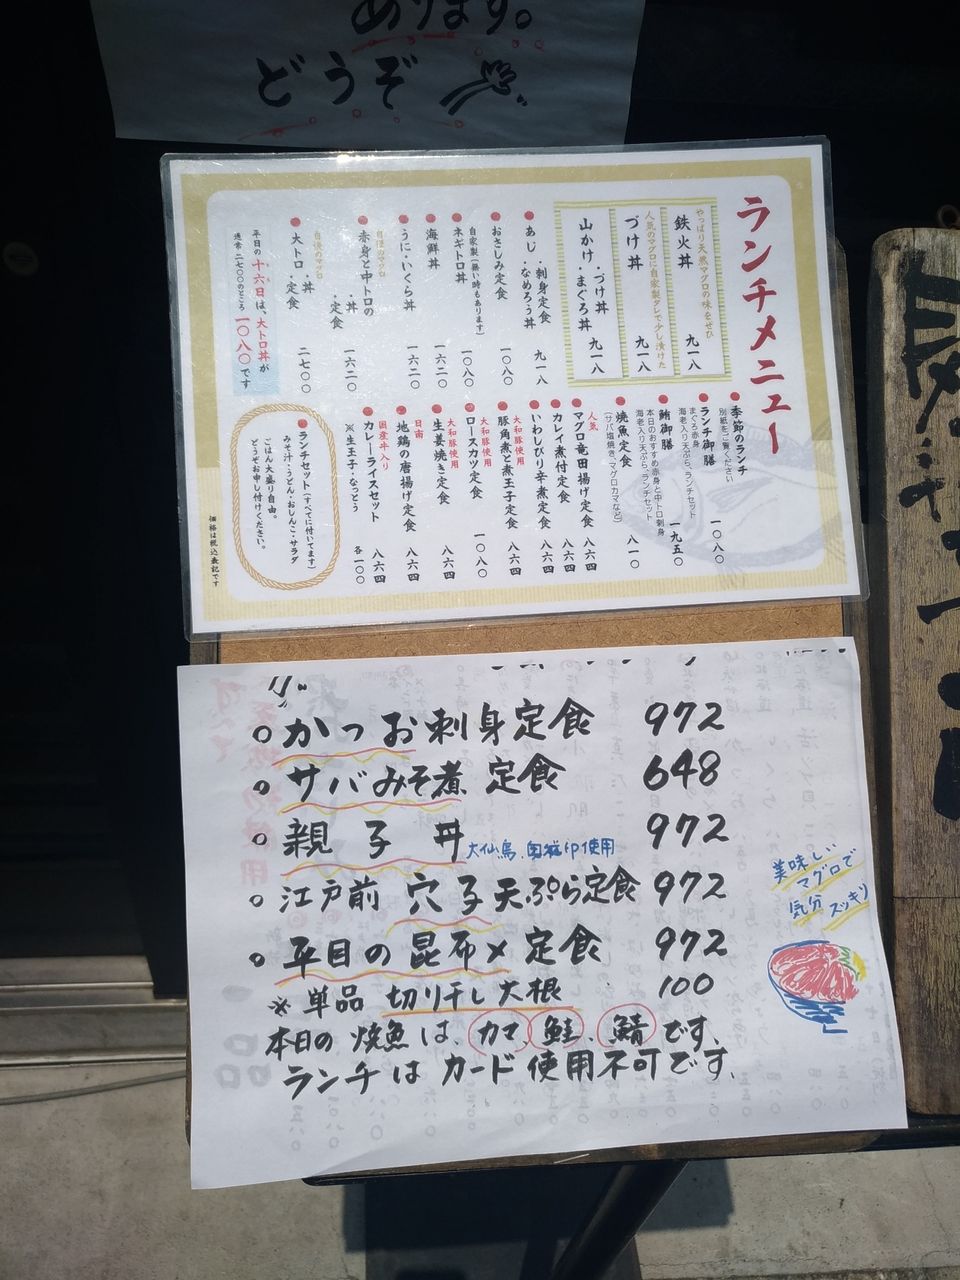 あります。
どうぞ
ランチメニュー
やっぱり天然マグロの味をぜひ
鉄火丼 九一八
人気のマグロに自家製ダレで少し漬けた
づけ丼 九一八
山かけ・づけ丼
・まぐろ丼 九一八
あじ・刺身定食
・なめろう丼 九一八
おさしみ定食 一〇八〇
自家製(無い時もあります)
ネギトロ丼 一〇八〇
海鮮丼 一六二〇
うに・いくら丼 一六二〇
自慢のマグロ
赤身と中トロの
・丼
・定食 一六二〇
自慢のマグロ
大トロ・丼
・定食 二七〇〇
平日の十六日は、大トロ丼が
通常二七〇〇のところ一〇八〇です
季節のランチ
別紙をご覧ください
ランチ御膳 一〇八〇
まぐろ赤身
海老入り天ぷら、ランチセット
鮪御膳 一九五〇
本日のおすすめ赤身と中トロ刺身
海老入り天ぷら、ランチセット
焼魚定食 八一〇
(サバ塩焼き、マグロカマなど)
人気
マグロ竜田揚げ定食 八六四
カレイ煮付定食 八六四
いわしぴり辛煮定食 八六四
大和豚使用
豚角煮と煮玉子定食 八六四
大和豚使用
ロースカツ定食 一〇八〇
大和豚使用
生姜焼き定食 八六四
日南
地鶏の唐揚げ定食 八六四
国産牛入り
カレーライスセット 八六四
※生玉子・なっとう 各一〇〇
ランチセット(すべてに付いてます)
みそ汁・うどん・おしんこ・サラダ
ごはん大盛り自由。
どうぞお申し付けください。
価格は税込表記です
かつお刺身定食 972
サバみそ煮定食 648
親子丼 972
江戸前 穴子天ぷら定食 972
平目の昆布〆定食 972
※単品 切り干し大根 100
本日の焼魚は、カマ、鮭、鯖です、
ランチはカード使用不可です、
美味しい
マグロで
気分
スッキリ